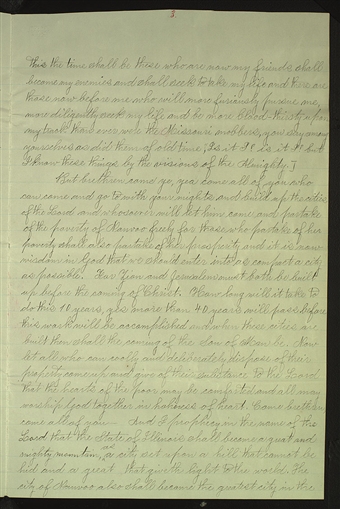 3
thus the time shall be these who are now my friends shall
become my enemies and shall seek to take my life and there are
those now before me who will more furiously pursue me,
more diligently seek my life and be more blood-thirsty upon
my track than ever were the Missouri mobbers, you say among
yourselves as did them of old time, Is it I & is it I? but
I know these things by the visions of the Almighty.]
But brethren come ye, yea come all of you who
can come and go to with your mights and build up the cities
of the Lord and whosoever will let him come and partake
of the poverty of Nauvoo freely for those who partake of her
poverty shall also partake of her prosperity and it is now
wisdom in God that we should enter into as compact a city
as possible. For Zion and Jerusalem must both be built
up before the coming of Christ. How long will it take to
do this 10 years, yes more than 40 years will pass before
this work will be accomplished and when these cities are
built then shall the coming of the Son of Man be. Now
let all who can coolly and deliberately dispose of their
property come up and give of their substance to the Lord
that the hearts of the poor may be comforted and all may
worship God together in holiness of heart. Come brethren
come all of you— And I prophecy in the name of the
Lord that the State of Illinois shall become a great and
mighty mountain, and a city set upon a hill that cannot be
hid and a great that giveth light to the world. The
city of Nauvoo also shall become the greatest city in the